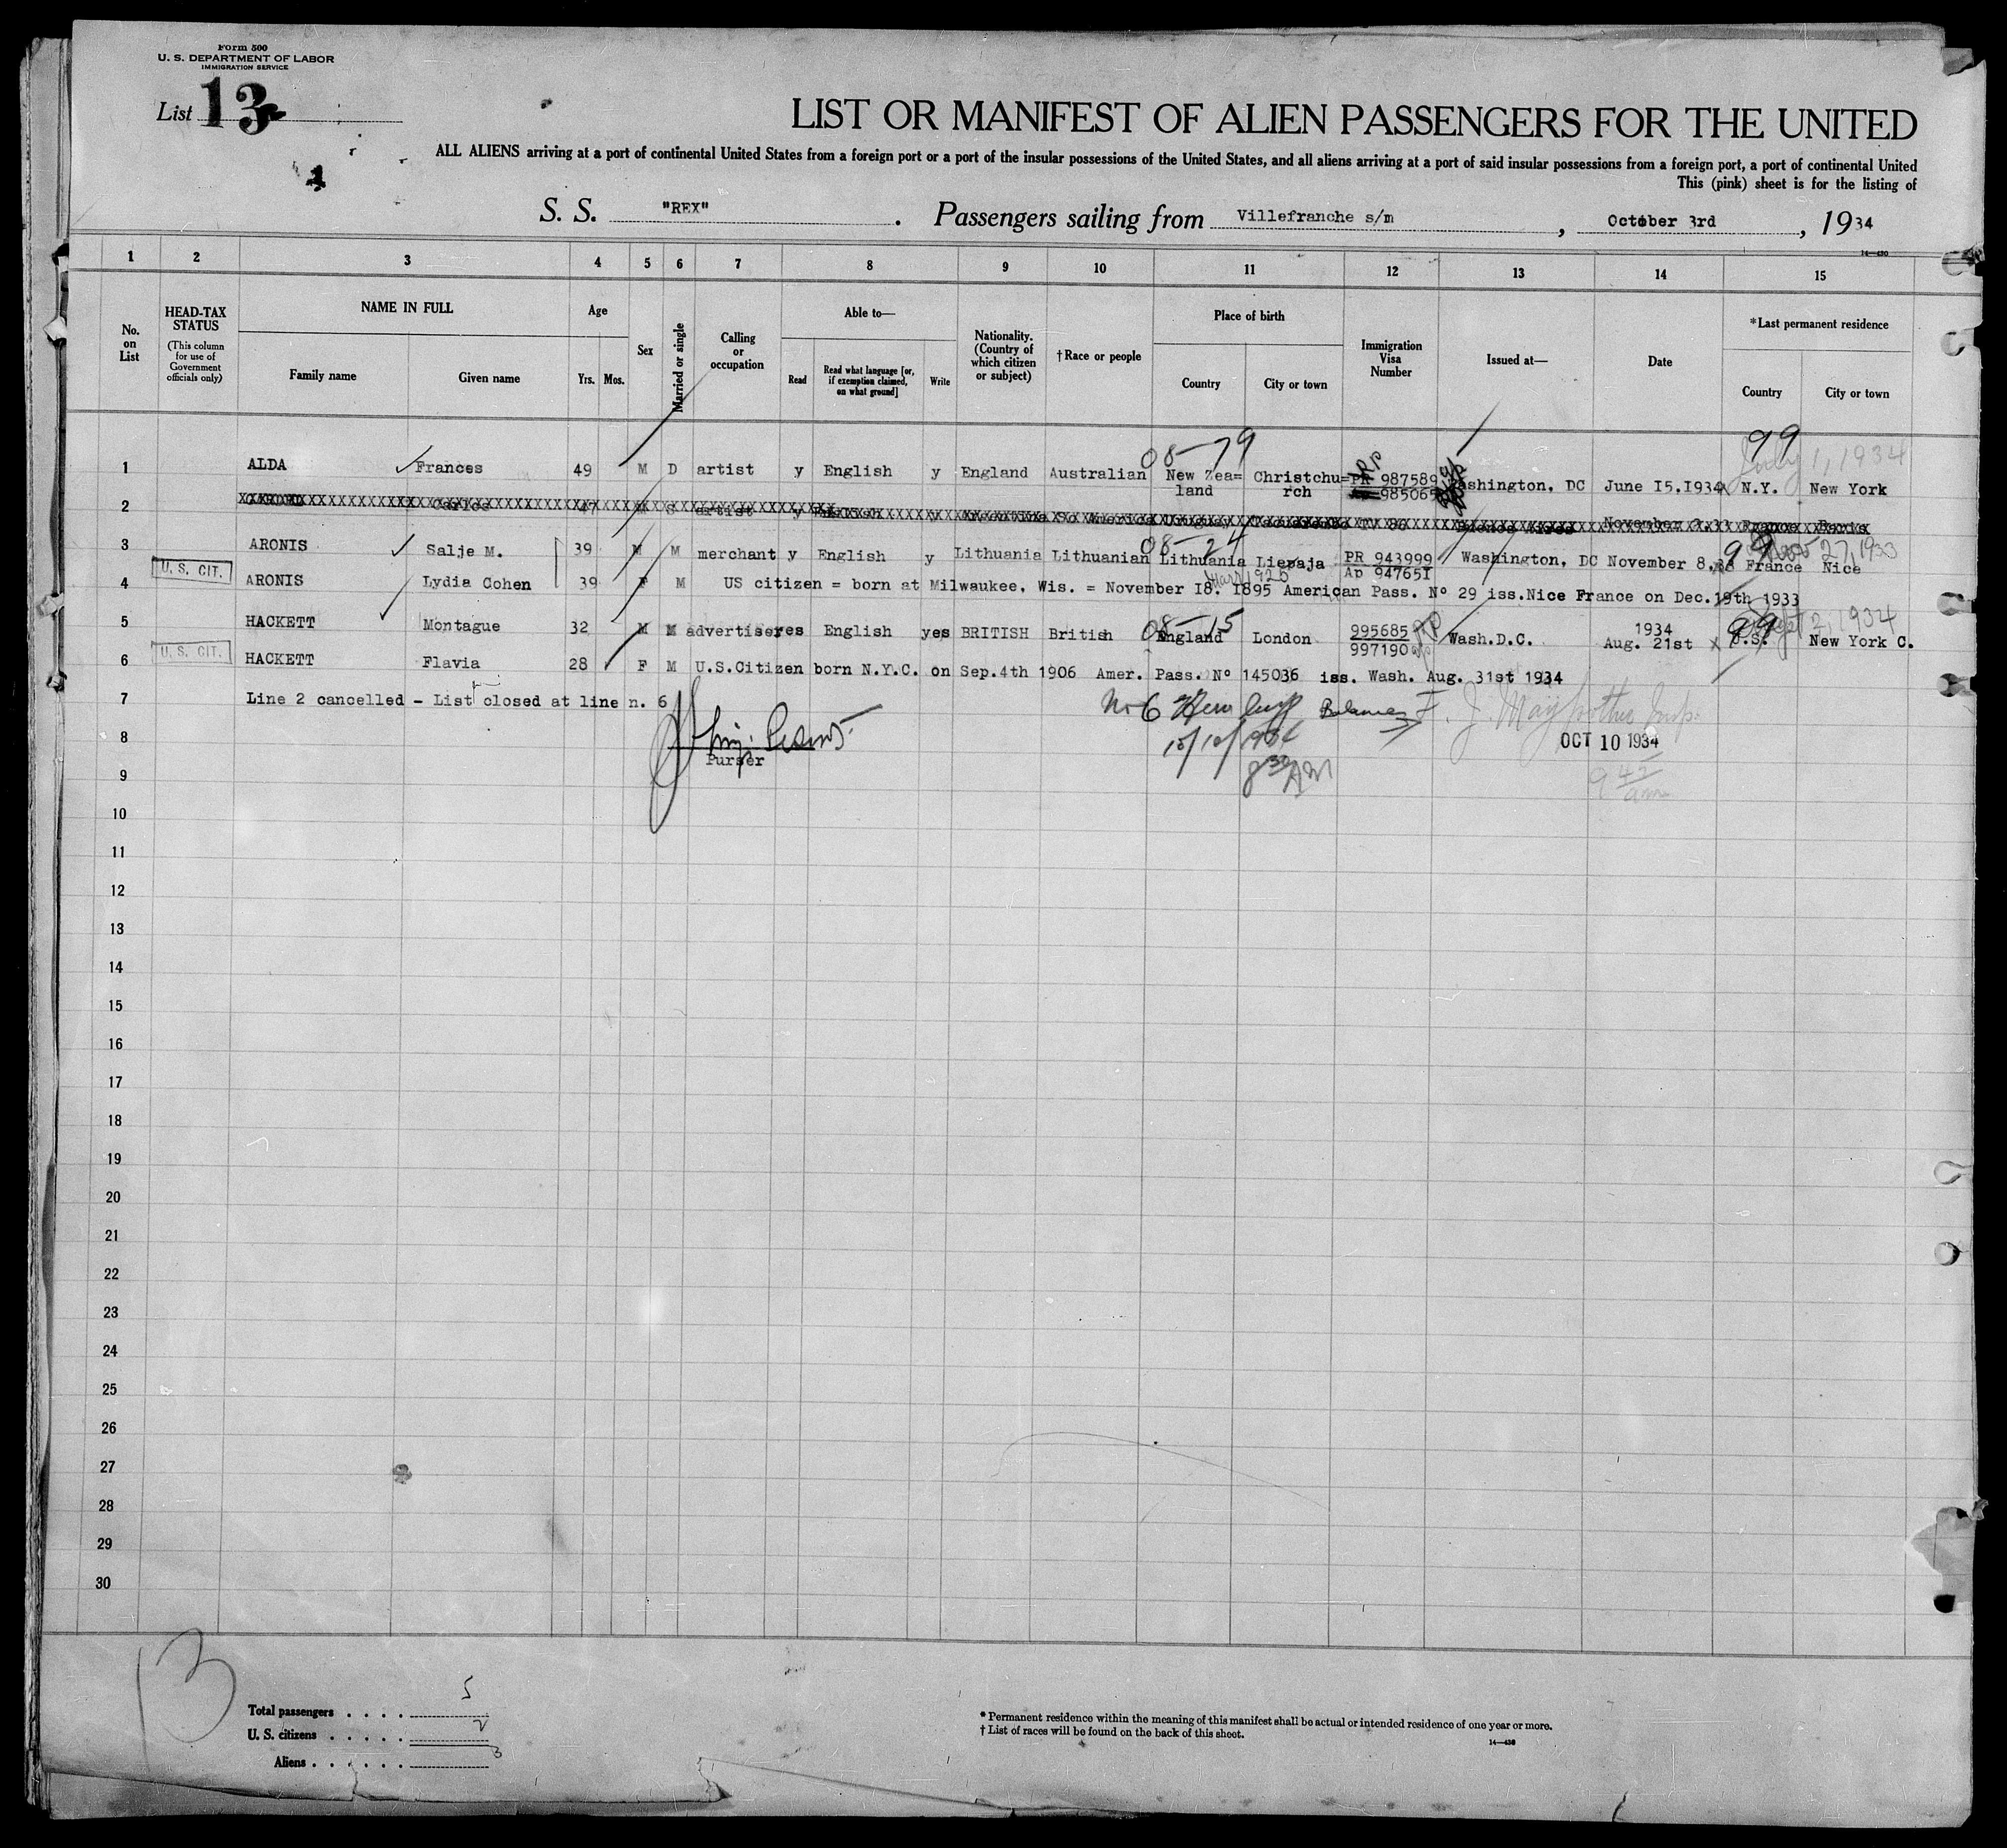 Form 500
U. S. DEPARTMENT OF LABOR
IMMIGRATION SERVICE
List 13
LIST OR MANIFEST OF ALIEN PASSENGERS FOR THE UNITED
ALL ALIENS arriving at a port of continental United States from a foreign port or a port of the insular possessions of the United States, and all aliens arriving at a port of said insular possessions from a foreign port, a port of continental United
This (pink) sheet is for the listing of
S. S. "REX" . Passengers sailing from Villefranche s/m , October 3rd , 1934
14—430
1 2 3 4 5 6 7 8 9 10 11 12 13 14 15
No. on List
HEAD-TAX STATUS
(This column for use of Government officials only)
NAME IN FULL
Family name Given name
Age
Yrs. Mos.
Sex
Married or single
Calling or occupation
Able to—
Read Read what language [or, if exemption claimed, on what ground] Write
Nationality. (Country of which citizen or subject)
†Race or people
Place of birth
Country City or town
Immigration Visa Number
Issued at—
Date
*Last permanent residence
Country City or town
08-79 99 July 1, 1934
1 ALDA Frances 49 M D artist y English y England Australian New Zea=land Christchu=rch PR 987589 985065 Washington, DC June 15.1934 N.Y. New York
2 Carlos 47 M S artist y y Argentina So America Uruguay TV 86 Buenos Aires November France Paris
08-24 99 Nov 27, 1933
3 ARONIS Salje M. 39 M M merchant y English y Lithuania Lithuanian Lithuania Liepaja PR 943999 Ap 947651 Washington, DC November 8, France Nice
U. S. CIT.
4 ARONIS Lydia Cohen 39 F M US citizen = born at Milwaukee, Wis. = November 18. 1895 American Pass. Nº 29 iss.Nice France on Dec.19th 1933
08-15 99 Sept 2, 1934
5 HACKETT Montague 32 M M advertiser yes English yes BRITISH British England London 995685 997190 Wash.D.C. 1934 Aug. 21st U.S. New York C.
U. S. CIT.
6 HACKETT Flavia 28 F M U.S.Citizen born N.Y.C. on Sep.4th 1906 Amer. Pass. Nº 145036 iss. Wash. Aug. 31st 1934
7 Line 2 cancelled - List closed at line n. 6
No 6
8 OCT 10 1934
Purser
8 30 AM
9 42 am
9
10
11
12
13
14
15
16
17
18
19
20
21
22
23
24
25
26
27
28
29
30
13
Total passengers . . . . 5
U. S. citizens . . . . . 2
Aliens . . . . . . 3
* Permanent residence within the meaning of this manifest shall be actual or intended residence of one year or more.
† List of races will be found on the back of this sheet.
14—430